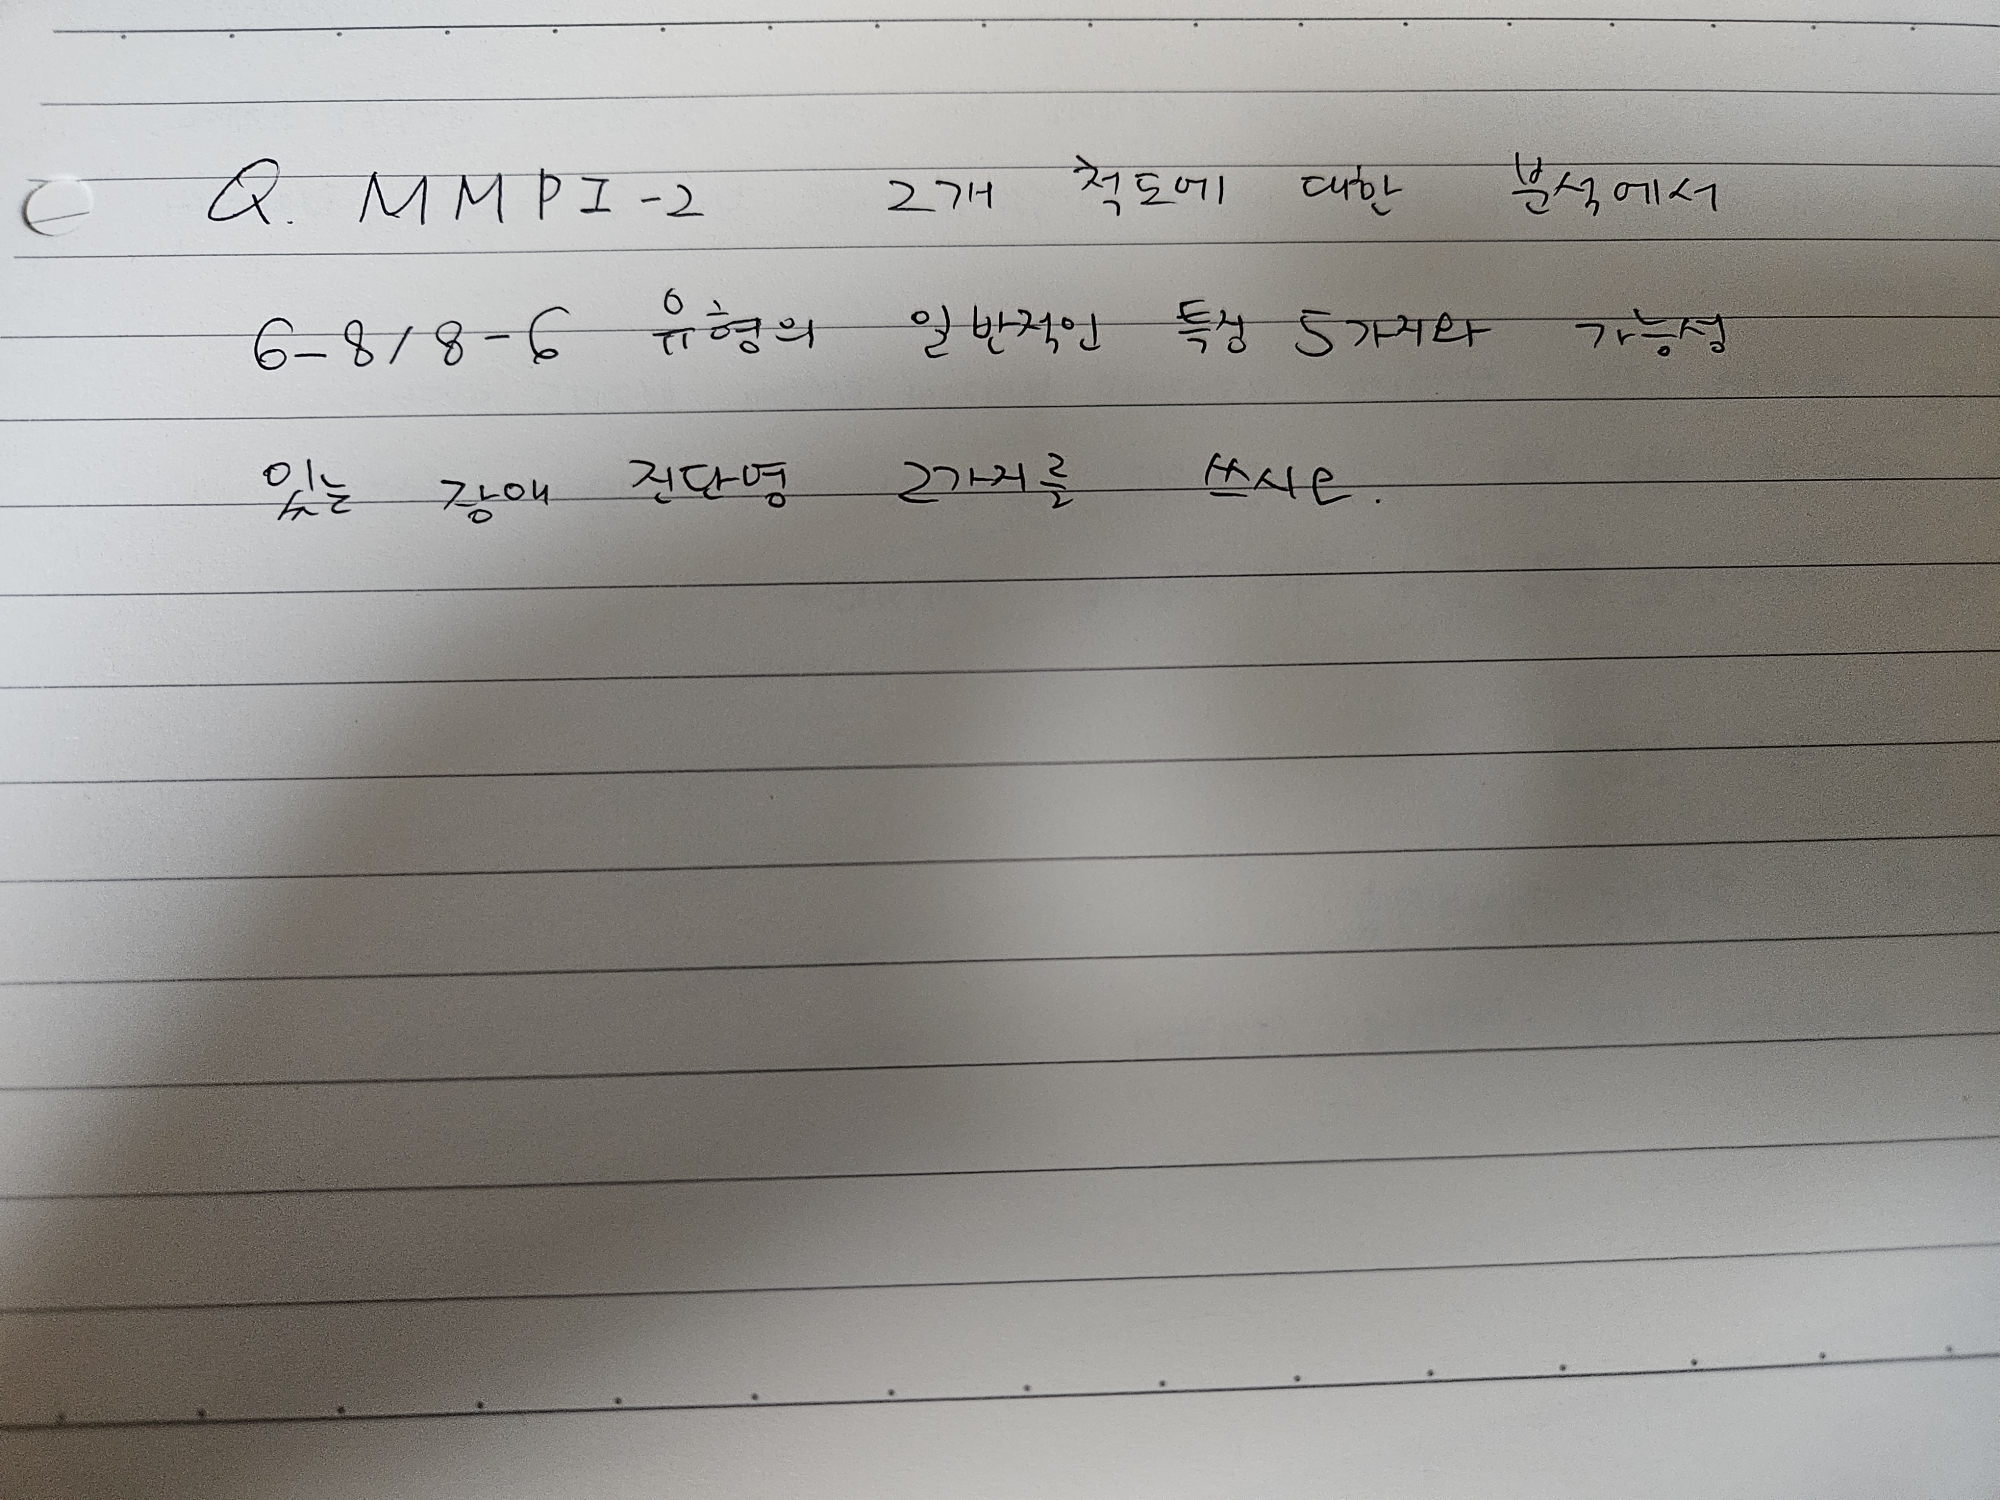 Q. MMPI-2 2개 척도에 대한 분석에서
6-8/8-6 유형의 일반적인 특성 5가지와 가능성
있는 장애 진단명 2가지를 쓰시오.